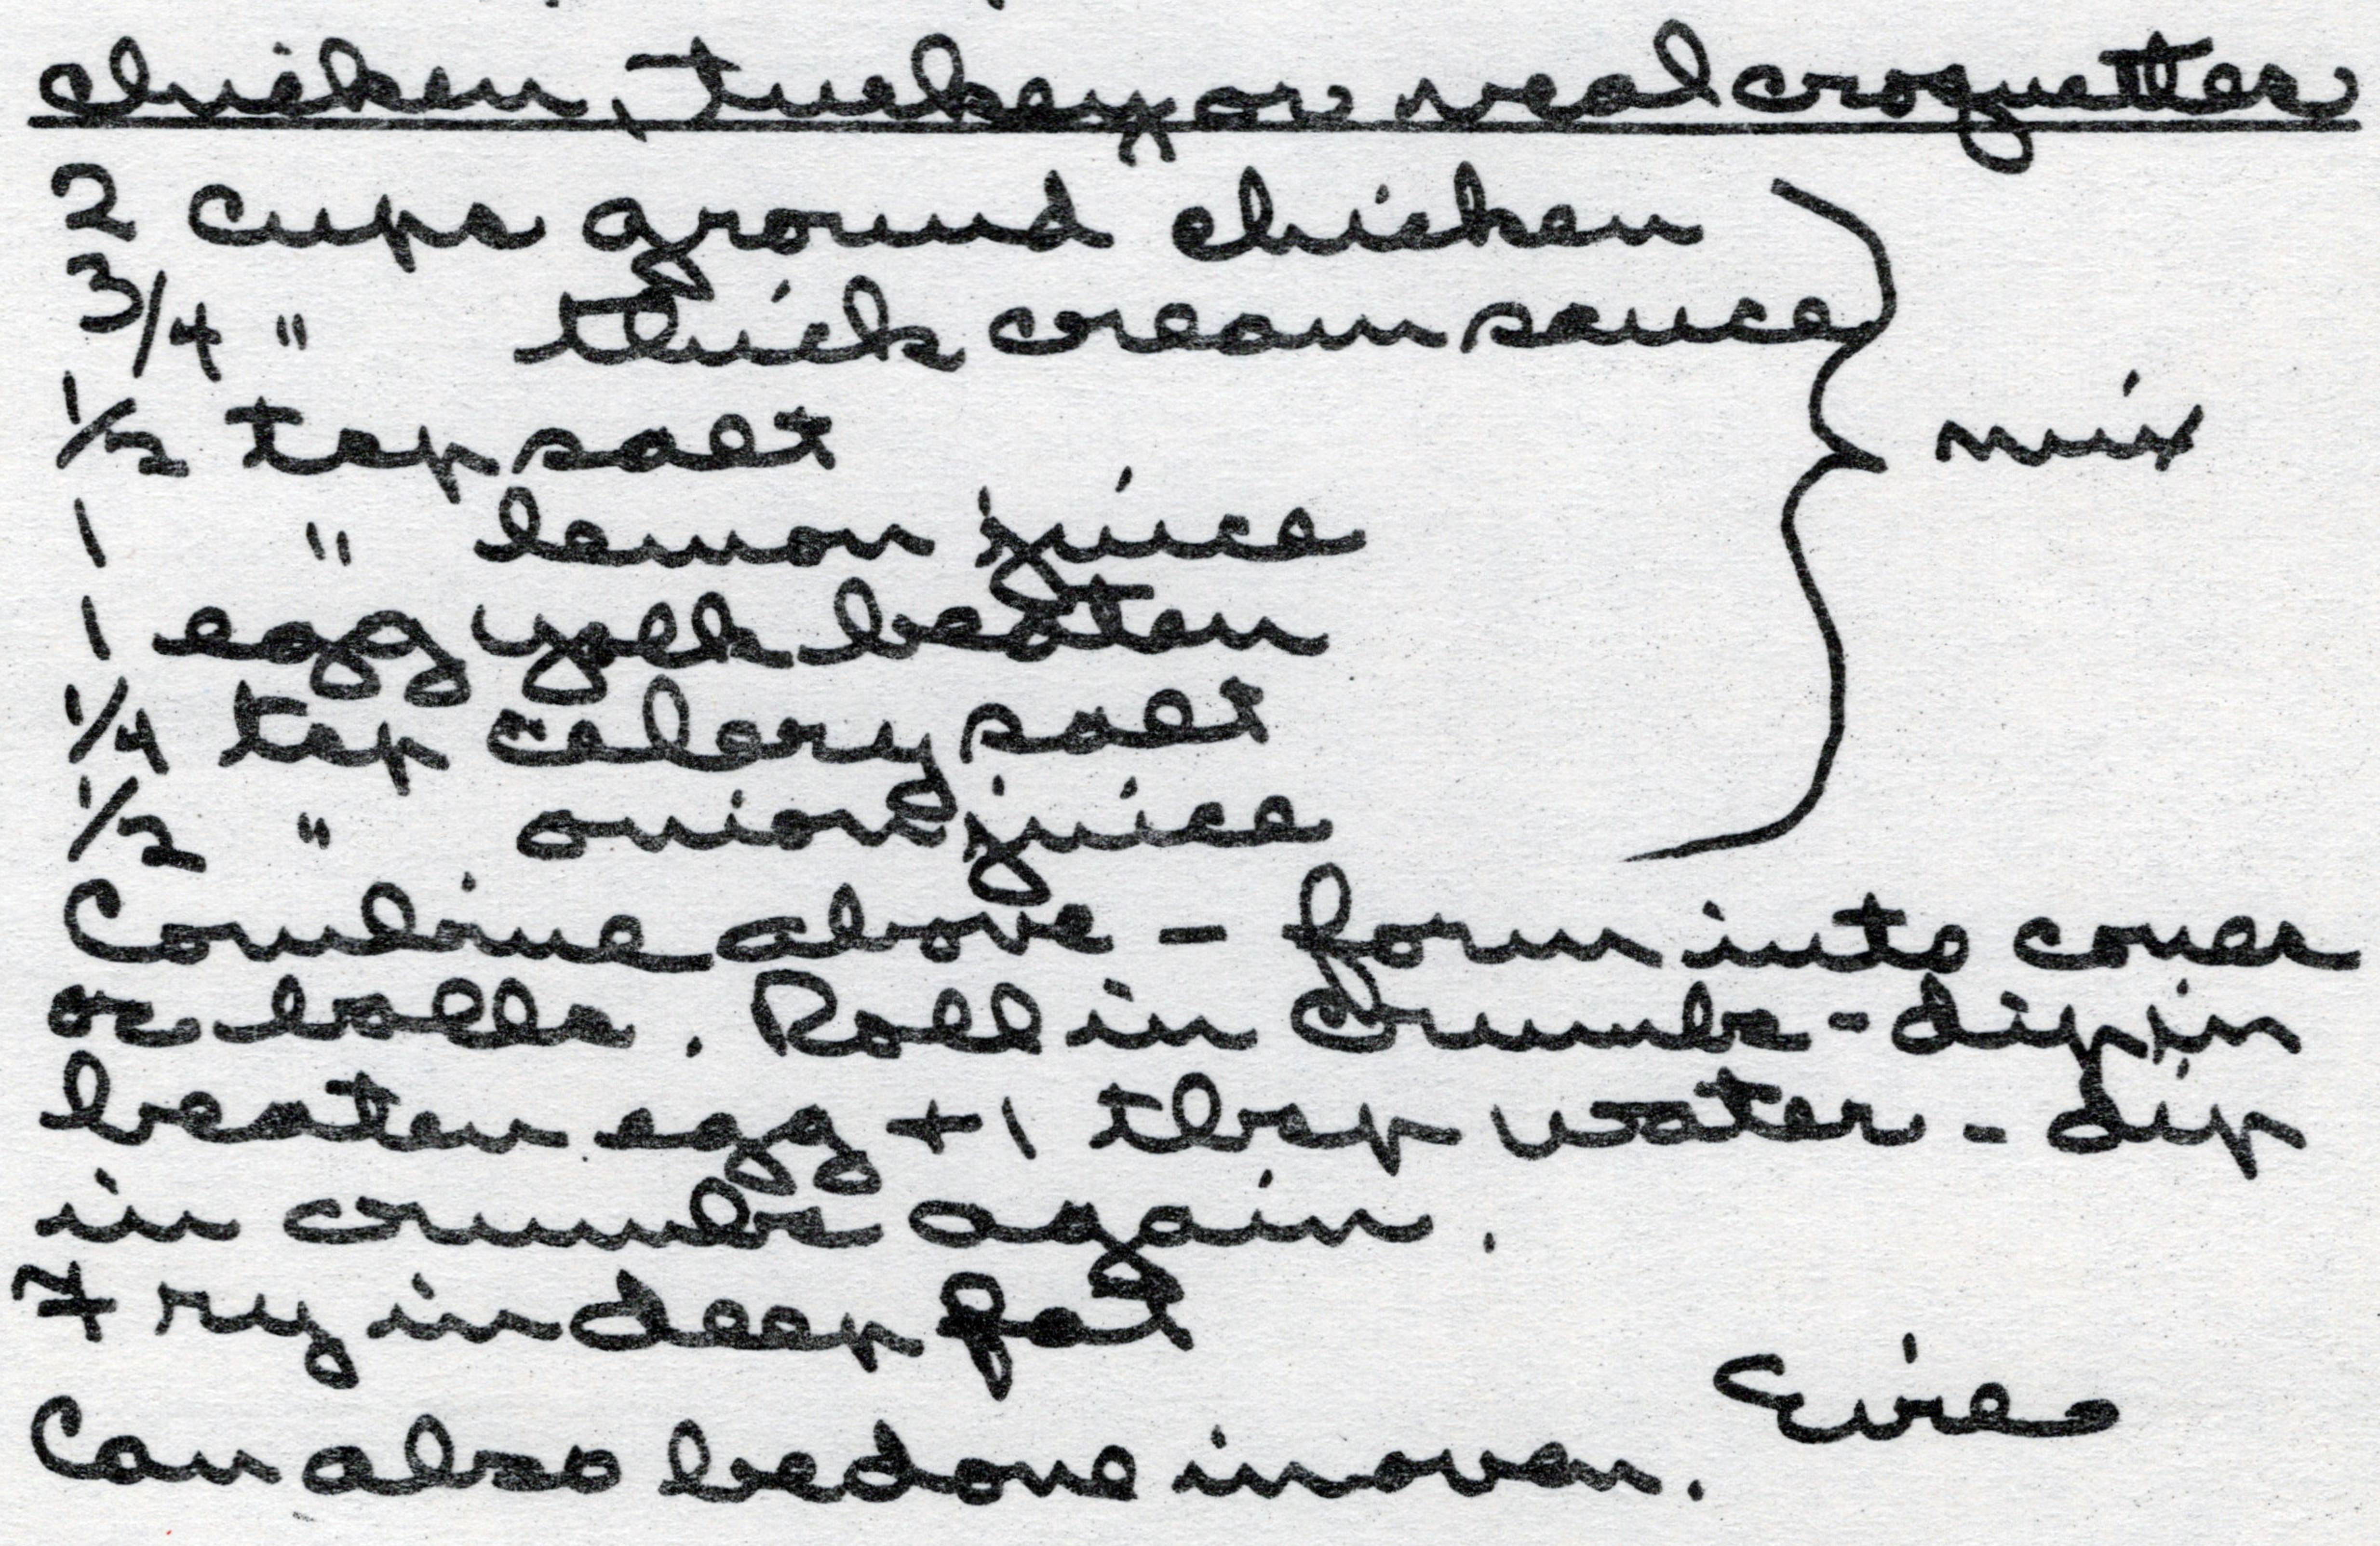 chicken, turkey or veal croquettes
2 cups ground chicken
3/4 " thick cream sauce
1/2 tsp salt
1 " lemon juice
1 egg yolk beaten
1/4 tsp celery salt
1/2 " onion juice
mix
Combine above - form into cones
or balls. Roll in crumbs - dip in
beaten egg + 1 tbsp water - dip
in crumbs again.
Fry in deep fat
Can also be done in oven.